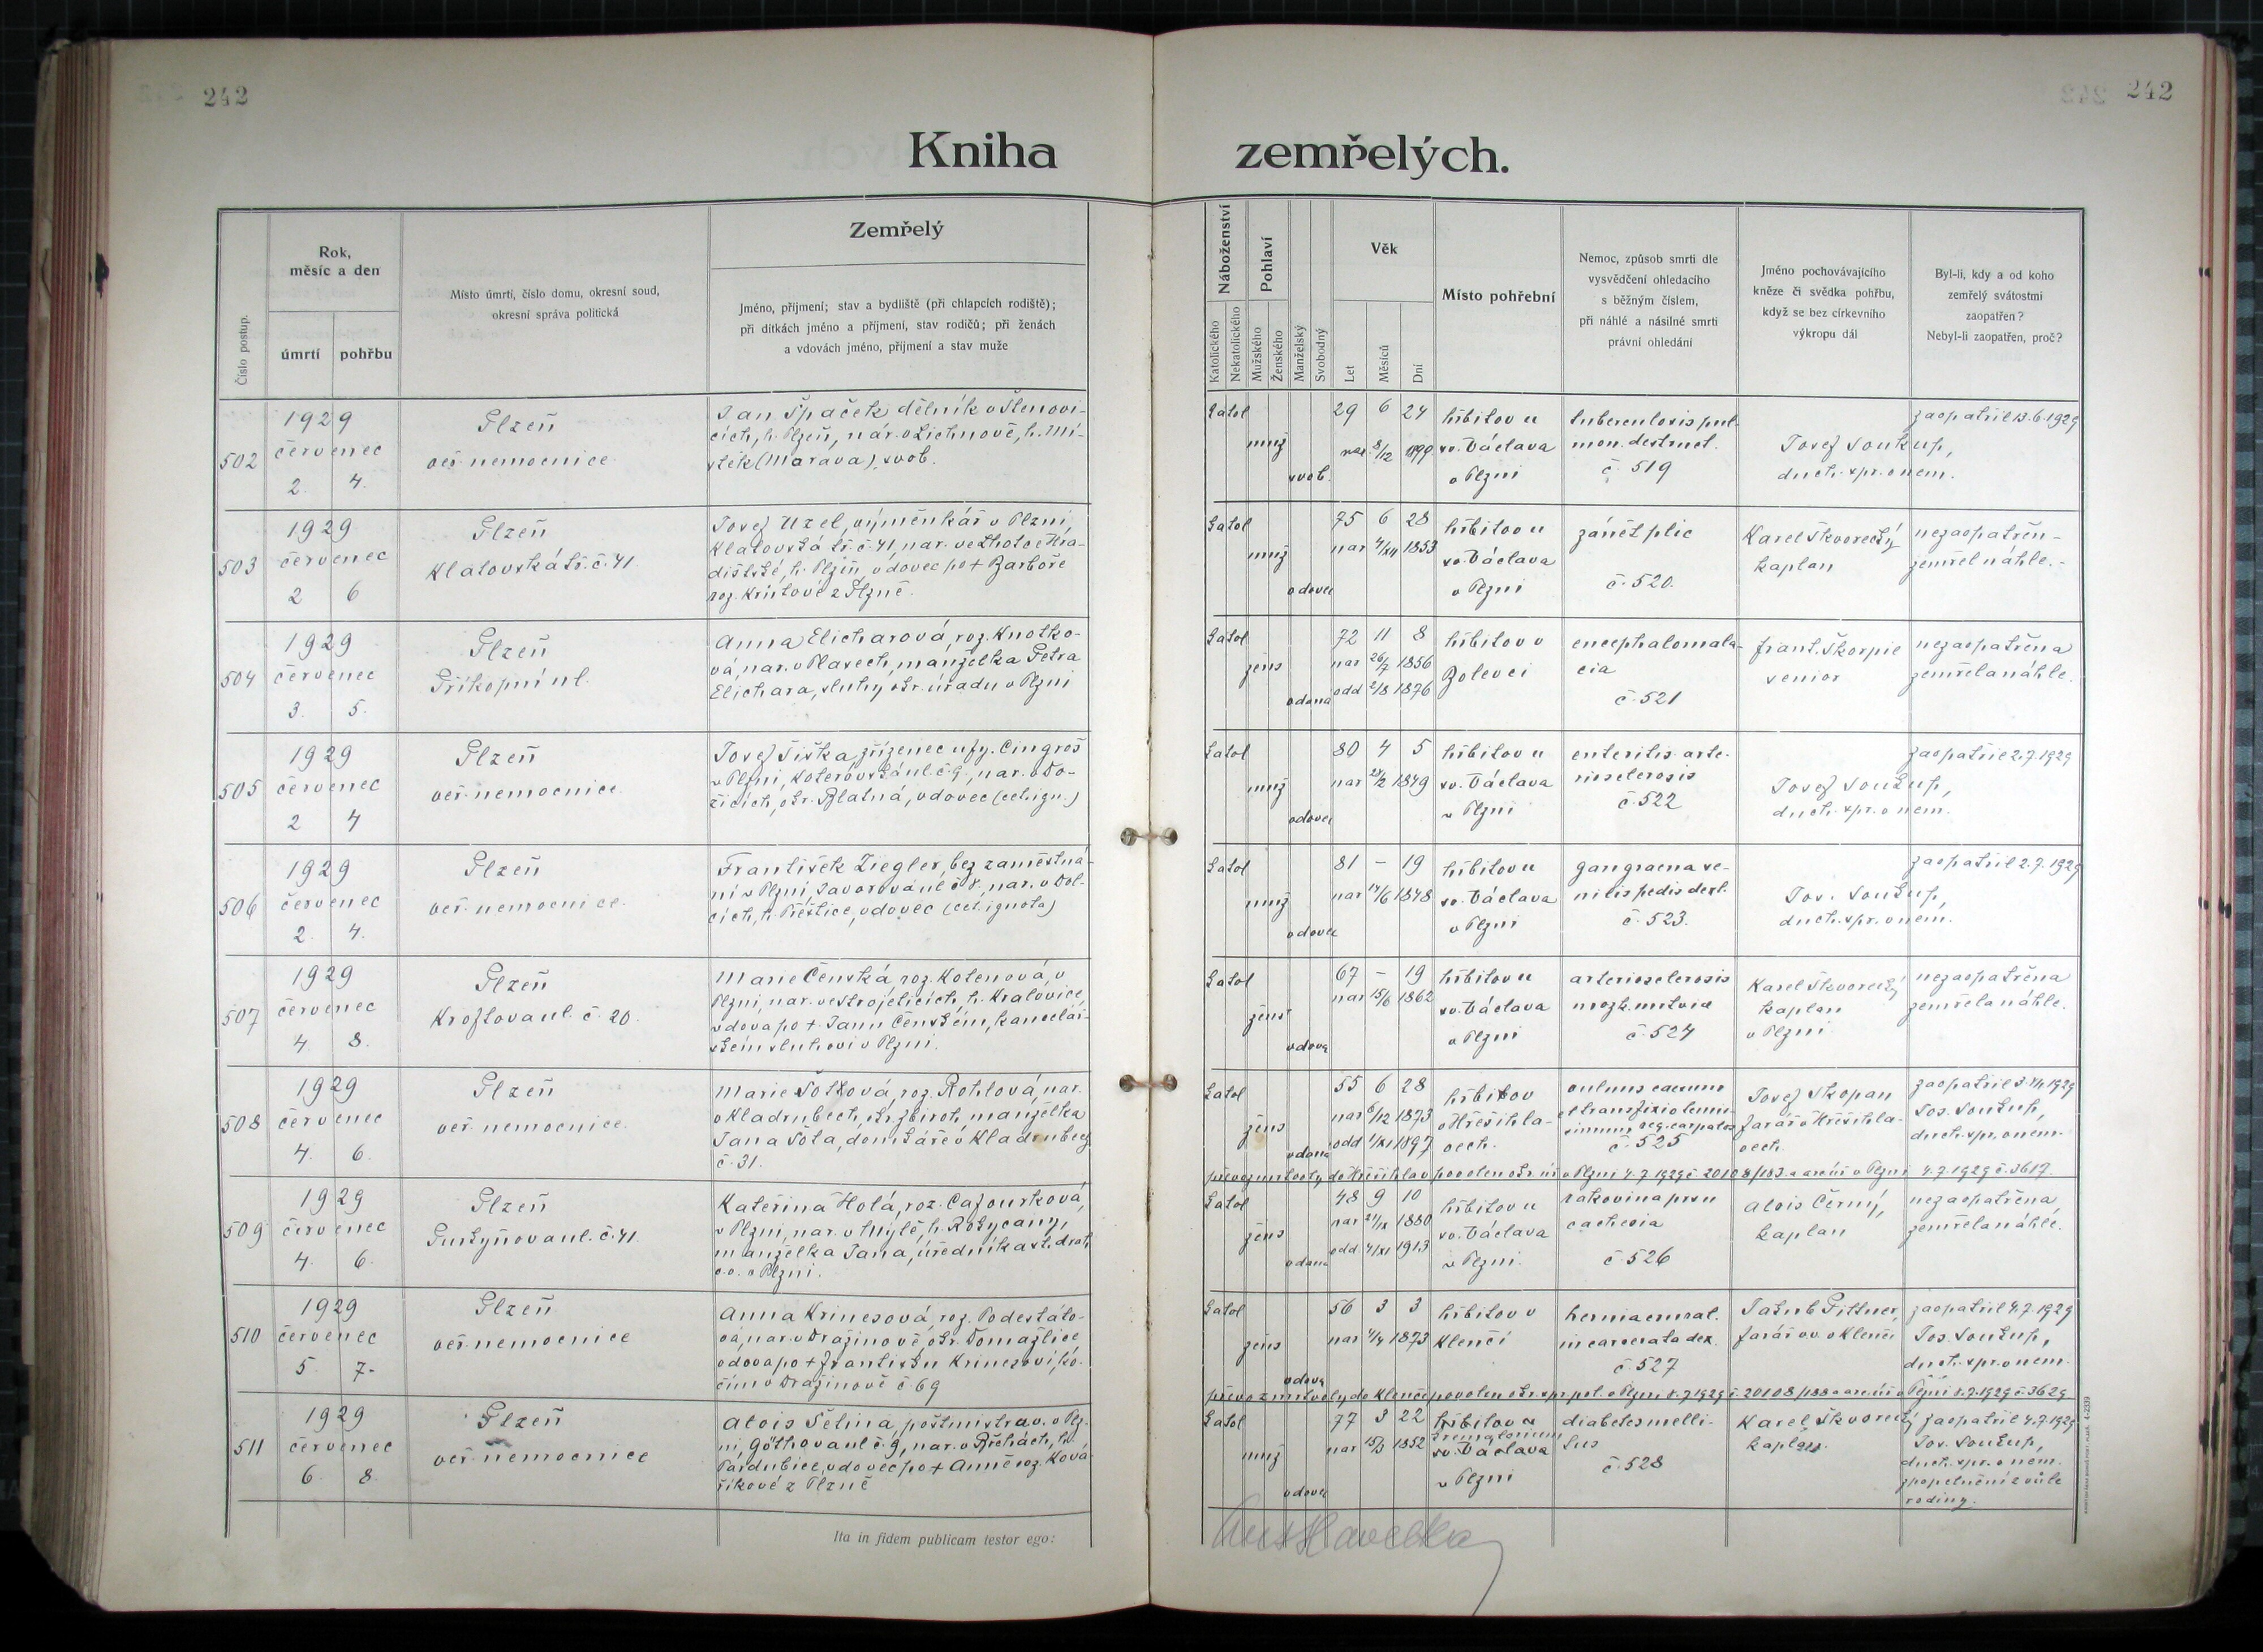 242
242
Kniha
zemřelých.
Číslo postup.
Rok,
měsíc a den
úmrtí
pohřbu
Místo úmrtí, číslo domu, okresní soud,
okresní správa politická
Zemřelý
Jméno, příjmení; stav a bydliště (při chlapcích rodiště);
při dítkách jméno a příjmení, stav rodičů; při ženách
a vdovách jméno, příjmení a stav muže
Náboženství
Katolického
Nekatolického
Pohlaví
Mužského
Ženského
Manželský
Svobodný
Věk
Let
Měsíců
Dní
Místo pohřební
Nemoc, způsob smrti dle
vysvědčení ohledacího
s běžným číslem,
při náhlé a násilné smrti
právní ohledání
Jméno pochovávajícího
kněze či svědka pohřbu,
když se bez církevního
výkropu dál
Byl-li, kdy a od koho
zemřelý svátostmi
zaopatřen?
Nebyl-li zaopatřen, proč?
502
1929
červenec
2. 4.
Plzeň
veř. nemocnice
Jan Špaček dělník v Štěnovi-
cích, h. Plzeň, nar. v Lichnově, h. Mí-
stek (Morava), svob.
katol
muž
svob.
29 6 24
nar 8/12 1899
hřbitov u
sv. Václava
v Plzni
tuberculosis pul-
mon. destruct.
č. 519
Josef Soukup,
duch. spr. v nem.
zaopatřil 13.6.1929
503
1929
červenec
2 6
Plzeň
Klatovská tř. č. 41
Josef Uzel, výměnkář v Plzni,
Klatovská tř. č. 41, nar. ve Lhotce Hra-
dištské, h. Plzeň, vdovec po + Barboře
roz. Krůtové z Plzně.
katol
muž
vdovec
75 6 28
nar 4/XII 1853
hřbitov u
sv. Václava
v Plzni
zánět plic
č. 520.
Karel Škvorecký
kaplan
nezaopatřen -
zemřel náhle.-
504
1929
červenec
3. 5.
Plzeň
Příkopní ul.
Anna Elicharová, roz. Knotko-
vá, nar. v Plavech, manželka Petra
Elichara, sluhy okr. úřadu v Plzni
katol
žens
vdaná
72 11 8
nar 26/7 1856
odd 2/8 1876
hřbitov v
Bolevci
encephalomala-
cia
č. 521
Frant. Škorpil
senior
nezaopatřena
zemřela náhle.
505
1929
červenec
2 4
Plzeň
veř. nemocnice
Josef Šiška, zřízenec u fy. Cingroš
v Plzni, Koterovská ul. č. 9, nar. v Do-
žicích, okr. Blatná, vdovec (cet. ign.)
katol
muž
vdovec
80 4 5
nar 27/2 1849
hřbitov u
sv. Václava
v Plzni
enteritis arte-
riosclerosis
č. 522
Josef Soukup,
duch. spr. v nem.
zaopatřil 2.7.1929
506
1929
červenec
2. 4.
Plzeň
veř. nemocnice
František Ziegler, bez zaměstná-
ní v Plzni, Javorová ul č 8, nar. v Dol-
cích, h. Přeštice, vdovec (cet. ignota)
katol
muž
vdovec
81 - 19
nar 14/6 1848
hřbitov u
sv. Václava
v Plzni
gangraena se-
nilis pedis dext.
č. 523.
Jos. Soukup,
duch. spr. v nem.
zaopatřil 2.7.1929
507
1929
červenec
4. 8.
Plzeň
Kroftova ul. č. 20
Marie Čenská, roz. Kotenová, v
Plzni, nar. ve Strojeticích, h. Kralovice,
vdova po + Janu Čenském, kancelář-
ském sluhovi v Plzni.
katol
žens
vdova
67 - 19
nar 15/6 1862
hřbitov u
sv. Václava
v Plzni
arteriosclerosis
mozk. mrtvice
č. 524
Karel Škvorecký
kaplan
v Plzni
nezaopatřena
zemřela náhle.
508
1929
červenec
4. 6.
Plzeň
veř. nemocnice.
Marie Šotková, roz. Rohlová, nar.
v Kladrubech, okr. Zbiroh, manželka
Jana Šota, domkáře v Kladrubech
č. 31.
katol
žens
vdaná
55 6 28
nar 6/12 1873
odd 1/XI 1897
hřbitov
v Hřešihla-
vech.
vulnus caesum
č. 525
Josef Skopan
farář v Hřešihla-
vech.
zaopatřil 3.VII 1929
Jos. Soukup,
duch. spr. v nem.
převoz mrtvoly do Hřešihlav povolen okr. úř. v Plzni 4.7.1929 č. 20108/183. a arciúř v Plzni 4.7.1929 č. 3617
509
1929
červenec
4. 6.
Plzeň
Purkyňova ul. č. 41
Kateřina Holá, roz. Cafourková,
v Plzni, nar. v Mýtě, h. Rokycany,
manželka Jana, úředníka st. drah
v. v. v Plzni.
katol
žens
vdaná
48 9 10
nar 24/IX 1880
odd. 4/XI 1913
hřbitov u
sv. Václava
v Plzni.
rakovina prsu
cachexia
č 526
Alois Černý,
kaplan
nezaopatřena,
zemřela náhle.
510
1929
červenec
5. 7-
Plzeň
veř. nemocnice
Anna Krinesová, roz. Podestáto-
vá, nar. v Dražinově, okr. Domažlice
vdova po + Františku Krinesovi, ko-
čím v Dražinově č. 69
katol
žens
vdova
56 3 3
nar 4/4 1873
hřbitov v
Klenčí
hernia crural.
incarcerata dex.
č. 527
Jakub Pittner,
farář ov. v Klenčí
zaopatřil 4.7.1929
Jos. Soukup,
duch. spr. v nem.
převoz mrtvoly do Klenče povolen okr. spr. pol. v Plzni 5.7.1929 č. 20108/188 a arciúř v Plzni 5.7.1929 č. 3629
511
1929
červenec
6. 8.
Plzeň
veř. nemocnice
Alois Šetina, poštmistr v. v. v Plz-
ni, Göthova ul č. 9, nar. v Břehách, h.
Pardubice, vdovec po + Anně roz. Ková-
říkové z Plzně
katol
muž
vdovec
77 3 22
nar 15/3 1852
hřbitov u
krematorium
sv. Václava
v Plzni
diabetes melli-
tus
č. 528
Karel Škvorecký
kaplan.
zaopatřil 4.7.1929
Jos. Soukup,
duch. spr. v nem.
zpopelnění z vůle
rodiny.
Ita in fidem publicam testor ego: